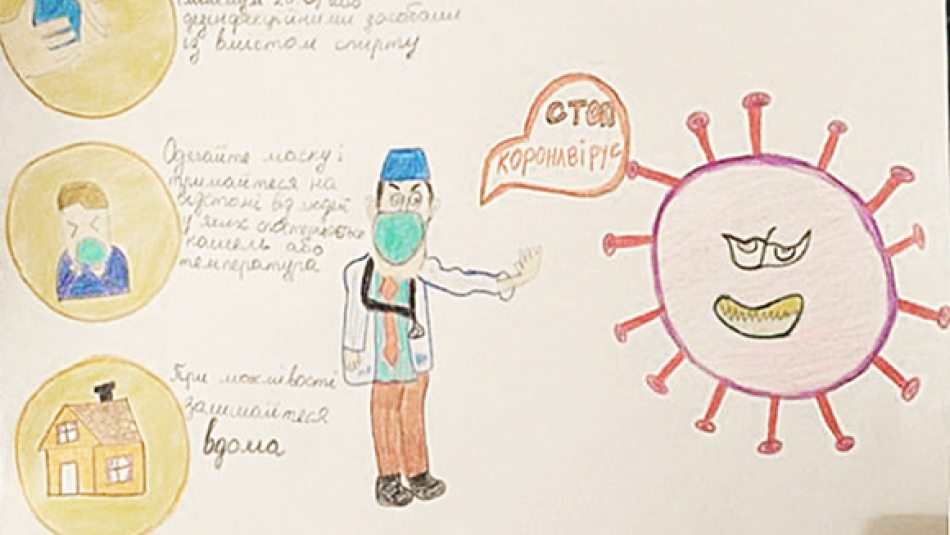 мінімум 20 с, або
дезінфекційними засобами
із вмістом спирту
Одягайте маску і
тримайтеся на
відстані від людей
у яких спостерігається
кашель або
температура
При можливості
залишайтеся
вдома
СТОП
КОРОНАВІРУС